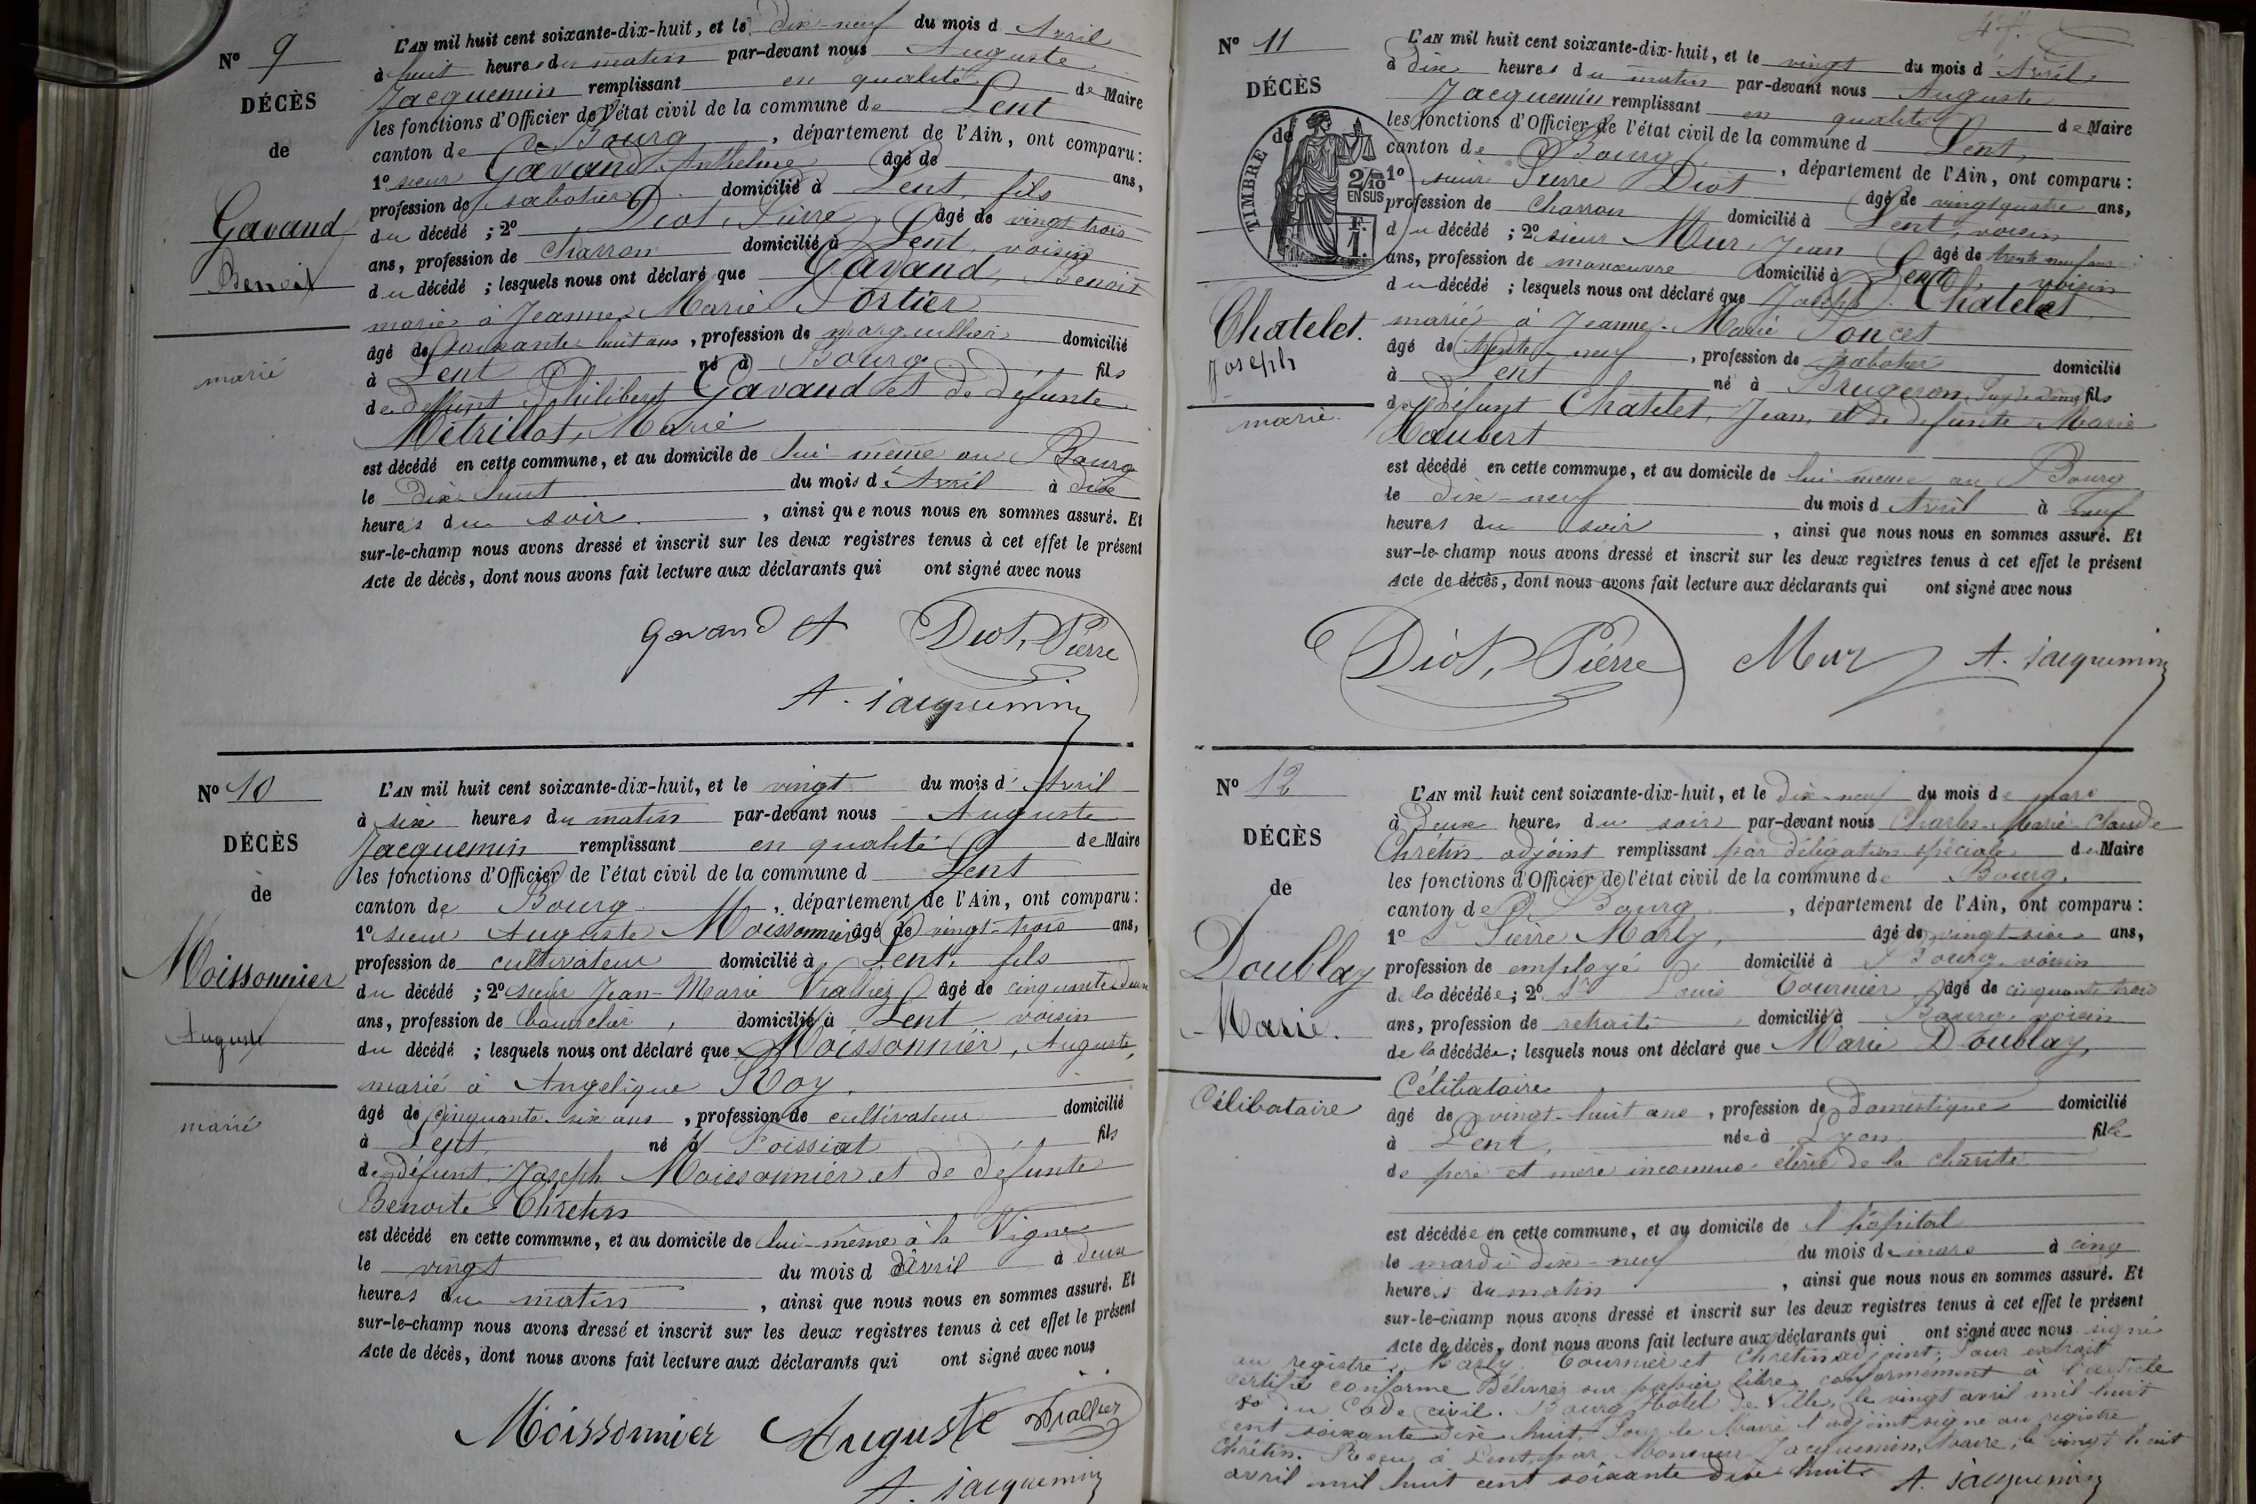 N° 9
DÉCÈS
de
Gavand
Benoit
marié
L'AN mil huit cent soixante-dix-huit, et le dix-neuf du mois d Avril
à huit heures du matin par-devant nous Auguste
Jacquemin remplissant en qualité de Maire
les fonctions d'Officier de l'état civil de la commune de Lent
canton de Bourg, département de l'Ain, ont comparu:
1° sieur Gavand Anthelme âgé de ans,
profession de sabotier domicilié à Lent, fils
du décédé ; 2° Diot, Pierre, âgé de vingt trois
ans, profession de charron domicilié à Lent, voisin
du décédé ; lesquels nous ont déclaré que Gavand, Benoit
marié à Jeanne Marie Portier
âgé de soixante huit ans, profession de marguillier domicilié
à Lent né à Bourg fils
de défunt Philibert Gavand et de défunte
Métrillot, Marie
est décédé en cette commune, et au domicile de lui-même au Bourg
le dix huit du mois d'Avril à dix
heures du soir, ainsi que nous nous en sommes assuré. Et
sur-le-champ nous avons dressé et inscrit sur les deux registres tenus à cet effet le présent
Acte de décès, dont nous avons fait lecture aux déclarants qui ont signé avec nous
Gavand A Diot, Pierre
A. Jacquemin
N° 10
DÉCÈS
de
Moissonnier
Auguste
marié
L'AN mil huit cent soixante-dix-huit, et le vingt du mois d'Avril
à six heures du matin par-devant nous Auguste
Jacquemin remplissant en qualité de Maire
les fonctions d'Officier de l'état civil de la commune d Lent
canton de Bourg, département de l'Ain, ont comparu:
1° sieur Auguste Moissonnier âgé de vingt-trois ans,
profession de cultivateur domicilié à Lent, fils
du décédé ; 2° sieur Jean-Marie Viallier âgé de cinquante deux
ans, profession de bourrelier, domicilié à Lent voisin
du décédé ; lesquels nous ont déclaré que Moissonnier, Auguste,
marié à Angelique Roy,
âgé de cinquante-six ans, profession de cultivateur domicilié
à Lent, né à Foissiat fils
de défunt Joseph Moissonnier et de défunte
Benoite Chretin
est décédé en cette commune, et au domicile de lui-même à la Vigne
le vingt du mois d Avril à deux
heures du matin, ainsi que nous nous en sommes assuré. Et
sur-le-champ nous avons dressé et inscrit sur les deux registres tenus à cet effet le présent
Acte de décès, dont nous avons fait lecture aux déclarants qui ont signé avec nous
Moissonnier Auguste Viallier
A. Jacquemin
47.
N° 11
DÉCÈS
de
TIMBRE
2/10
EN SUS
F.
1.
Chatelet.
Joseph
marié.
L'AN mil huit cent soixante-dix-huit, et le vingt du mois d'Avril,
à dix heures du matin par-devant nous Auguste
Jacquemin remplissant en qualité de Maire
les fonctions d'Officier de l'état civil de la commune d Lent,
canton de Bourg, département de l'Ain, ont comparu:
1° sieur Pierre Diot âgé de vingt quatre ans,
profession de charron domicilié à Lent, voisin
du décédé ; 2° sieur Mur, Jean âgé de trente neuf ans
ans, profession de manœuvre domicilié à Lent, voisin
du décédé ; lesquels nous ont déclaré que Joseph Chatelet
marié à Jeanne-Marie Poncet
âgé de trente-neuf, profession de sabotier domicilié
à Lent né à Brugeron, Puy de Dôme fils
de défunt Chatelet, Jean, et de défunte Marie
Haubert
est décédé en cette commune, et au domicile de lui-même au Bourg
le dix-neuf du mois d Avril à neuf
heures du soir, ainsi que nous nous en sommes assuré. Et
sur-le-champ nous avons dressé et inscrit sur les deux registres tenus à cet effet le présent
Acte de décès, dont nous avons fait lecture aux déclarants qui ont signé avec nous
Diot, Pierre Mur A. Jacquemin
N° 12
DÉCÈS
de
Doublay
Marie.
Célibataire
L'AN mil huit cent soixante-dix-huit, et le dix-neuf du mois de mars
à deux heures du soir par-devant nous Charles-Marie-Claude
Chrétin adjoint remplissant par délégation spéciale du Maire
les fonctions d'Officier de l'état civil de la commune de Bourg,
canton de Bourg, département de l'Ain, ont comparu:
1° Sr Pierre Marly, âgé de vingt-six ans,
profession de employé domicilié à Bourg, voisin
de la décédée; 2° Sr Louis Tournier, âgé de cinquante trois
ans, profession de retraité domicilié à Bourg, voisin
de la décédée; lesquels nous ont déclaré que Marie Doublay,
Célibataire
âgé de vingt-huit ans, profession de domestique domicilié
à Lent, née à Lyon fille
de père et mère inconnus élève de la charité
est décédée en cette commune, et au domicile de l'hôpital
le mardi dix-neuf du mois de mars à cinq
heures du matin, ainsi que nous nous en sommes assuré. Et
sur-le-champ nous avons dressé et inscrit sur les deux registres tenus à cet effet le présent
Acte de décès, dont nous avons fait lecture aux déclarants qui ont signé avec nous signé
au registre, Marly, Tournier et Chretin adjoint; Pour extrait
certifié conforme Délivré sur papier libre conformément à l'article
80 du Code civil. Bourg, Hotel de Ville, le vingt avril mil huit
cent soixante dix huit, Pour le Maire l'adjoint signé au registre
Chrétin. Reçu à Lent par Monsieur Jacquemin, Maire, le vingt huit
avril mil huit cent soixante dix huit A. Jacquemin